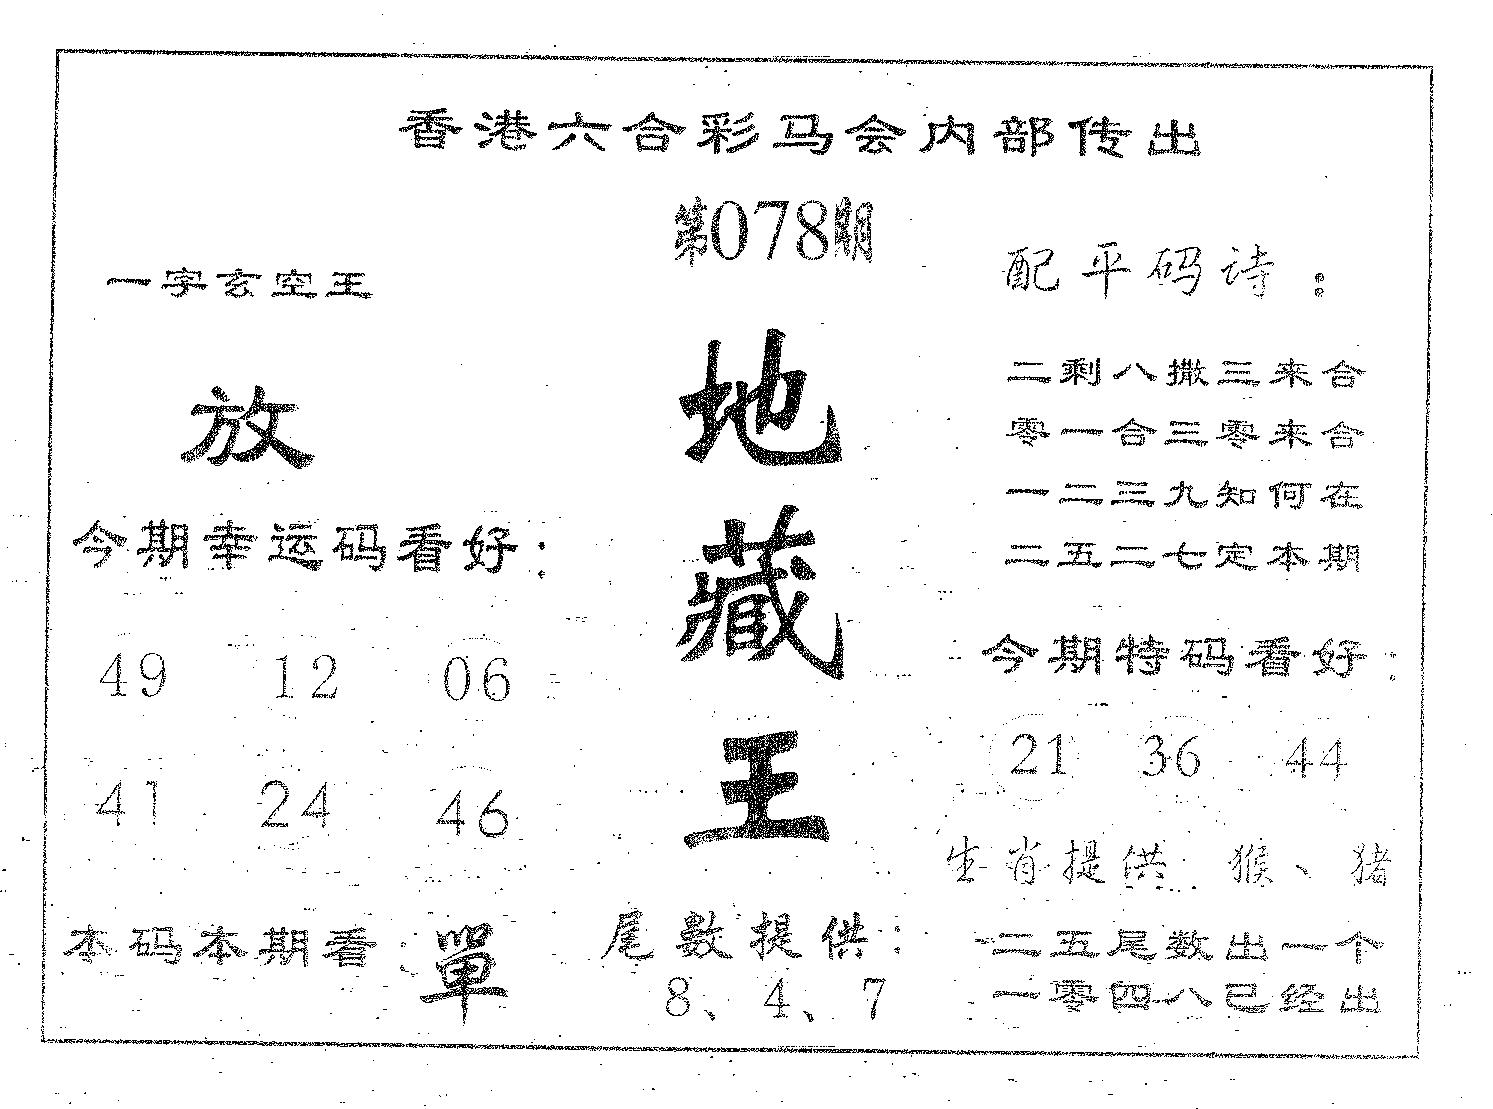 香港六合彩马会内部传出
第078期
一字玄空王
放
今期幸运码看好：
49 12 06
41 24 46
本码本期看：單
地
藏
王
尾數提供：
8、4、7
配平码诗：
二剩八撒三来合
零一合三零来合
一二三九知何在
二五二七定本期
今期特码看好：
21 36 44
生肖提供 猴、猪
二五尾数出一个
一零四八已经出